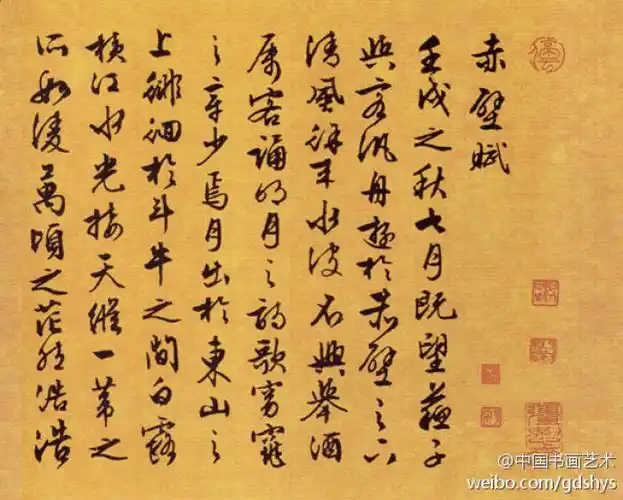 赤壁賦
壬戌之秋七月既望蘇子
與客汎舟遊於赤壁之下
清風徐來水波不興舉酒
属客誦明月之詩歌窈窕
之章少焉月出於東山之
上徘徊於斗牛之間白露
橫江水光接天縱一葦之
所如凌萬頃之茫然浩浩
@中国书画艺术
weibo.com/gdshys